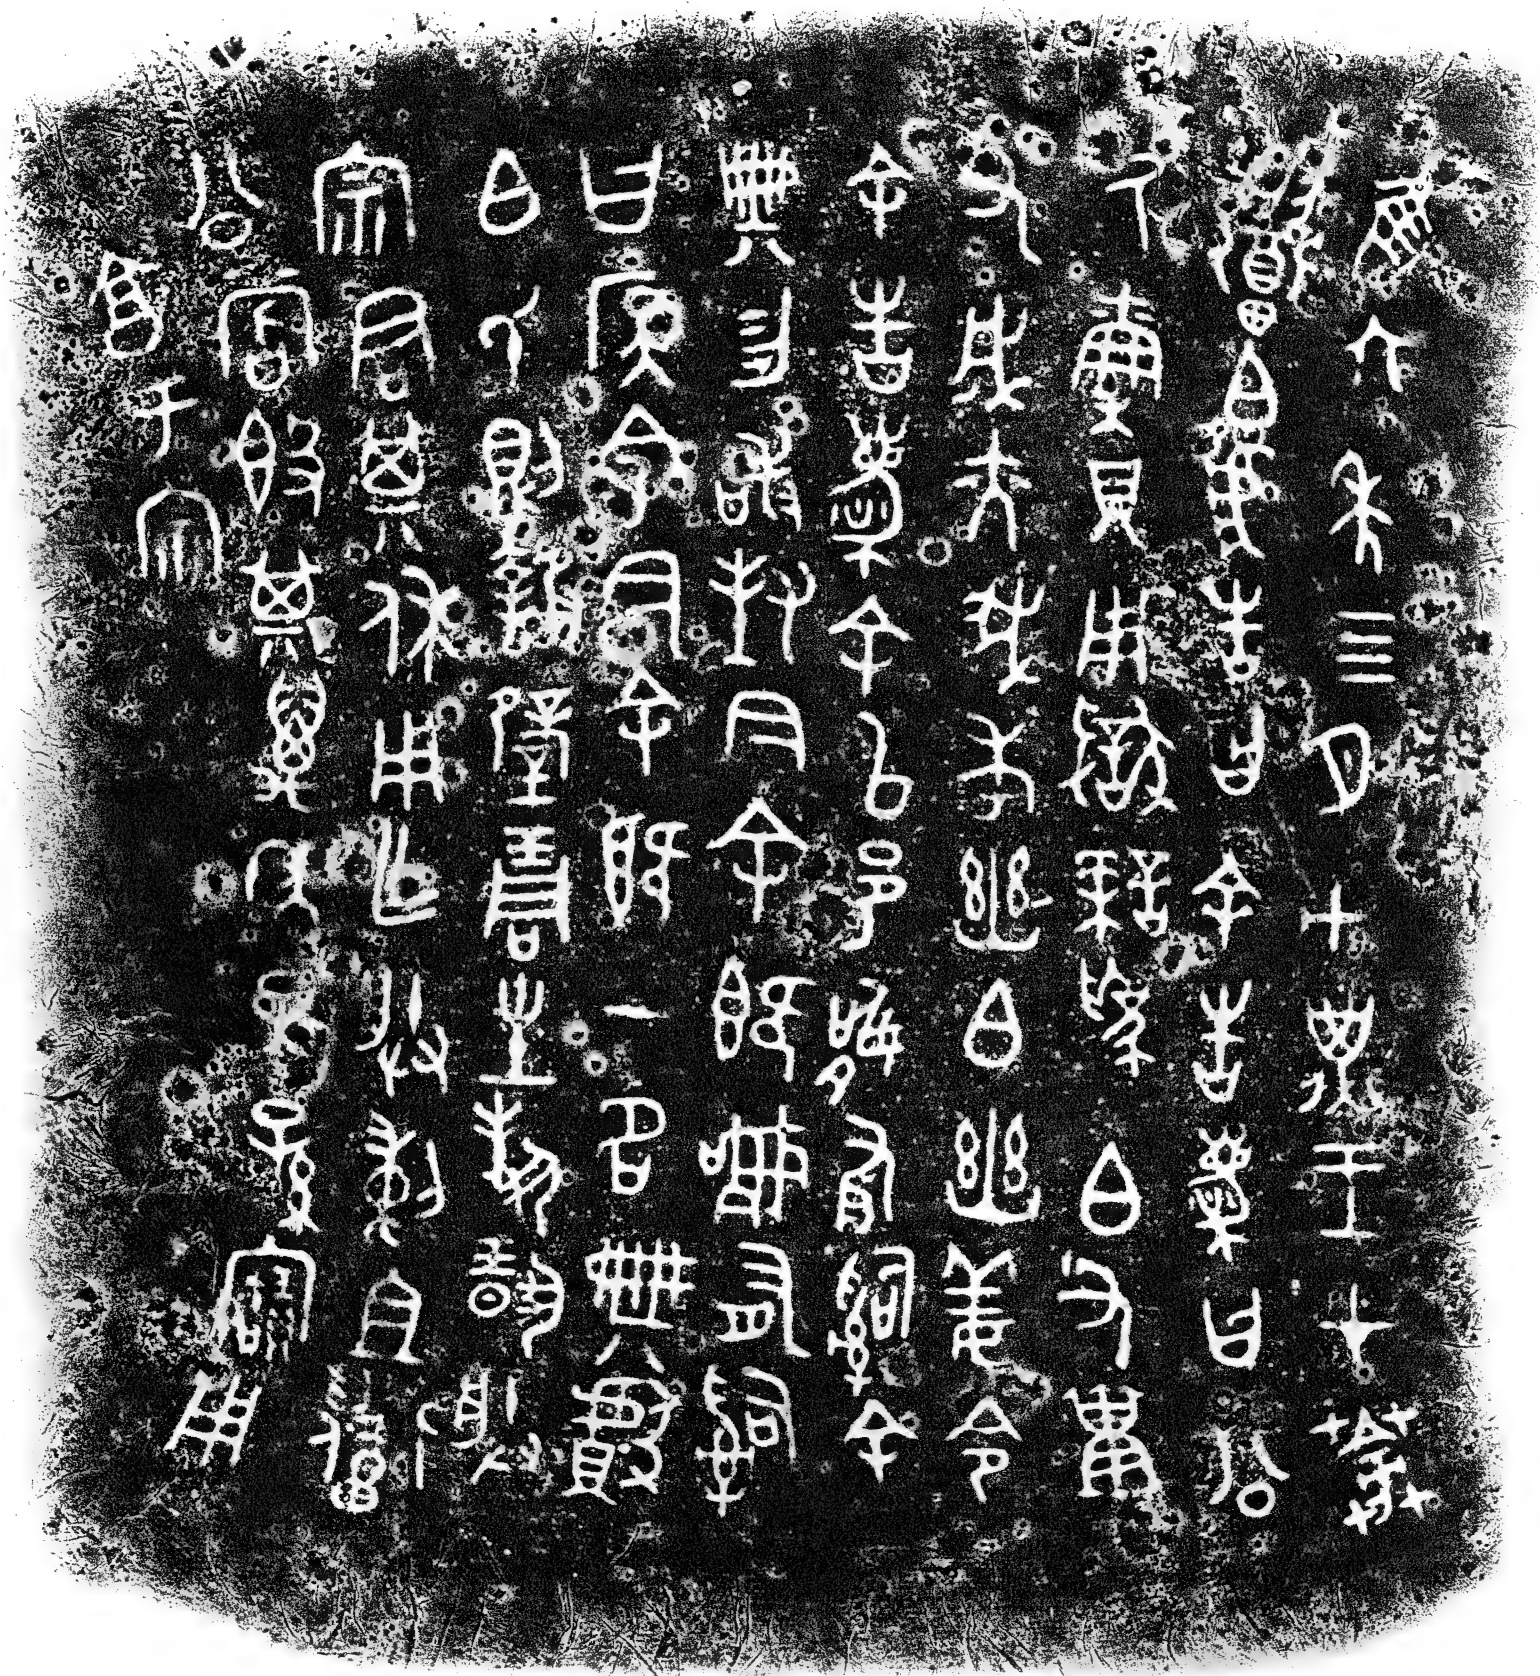 隹六年四月甲子王才𦭞
召白虎告曰余告慶曰公
厥稟貝用獄諫爲白又祗
又成亦我考幽白幽姜令
余告慶余以邑訊有司余
典勿敢封今余既訊有司
曰令今余既一名典獻
白氏則報璧琱生對揚朕
宗君其休用乍朕剌且召
公嘗𣪘其萬年子子孫孫寶用
享于宗